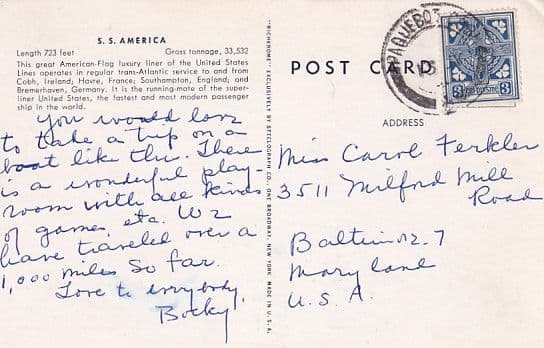 S. S. AMERICA
Length 723 feet Gross tonnage, 33,532
This great American-Flag luxury liner of the United States
Lines operates in regular trans-Atlantic service to and from
Cobh, Ireland; Havre, France; Southampton, England; and
Bremerhaven, Germany. It is the running-mate of the super-
liner United States, the fastest and most modern passenger
ship in the world.
You would love
to take a trip on a
boat like this. There
is a wonderful play-
room with all kinds
of games, etc. We
have traveled over a
1,000 miles so far.
Love to everybody,
Bocky
"RICHKROME" EXCLUSIVELY BY STEELOGRAPH CO. ONE BROADWAY, NEW YORK. MADE IN U.S.A.
POST CARD
PAQUEBOT
3 3
ADDRESS
Miss Carol Ferkler
3511 Milford Mill
Road
Baltimore 7
Maryland
U. S. A.